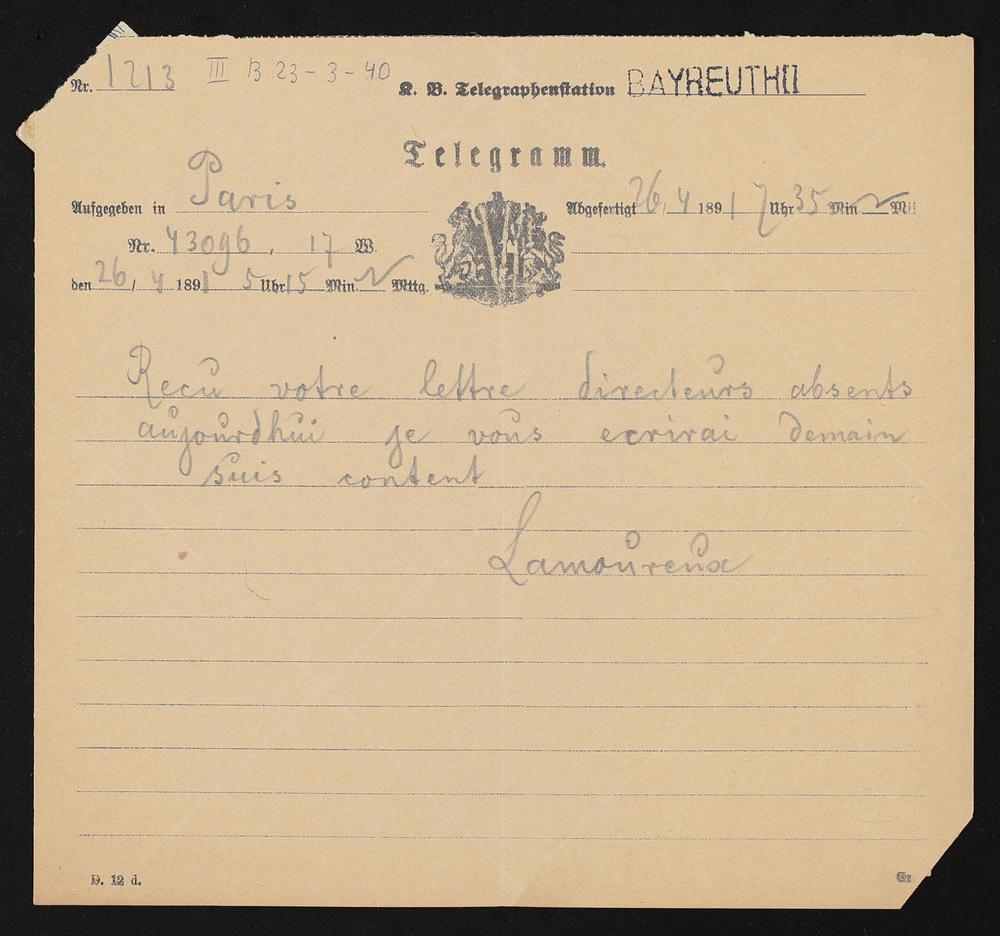 Nr. 1213 III B 23-3-40 K. B. Telegraphenstation BAYREUTH II
Telegramm.
Aufgegeben in Paris
Abgefertigt 26/4 1891 7 Uhr 35 Min N Mi
Nr. 43096, 17 W.
den 26/4 1891 5 Uhr 15 Min. N Mttg.
Recu votre lettre directeurs absents
aujourdhui je vous ecrirai demain
suis content
Lamoureux
D. 12 d.